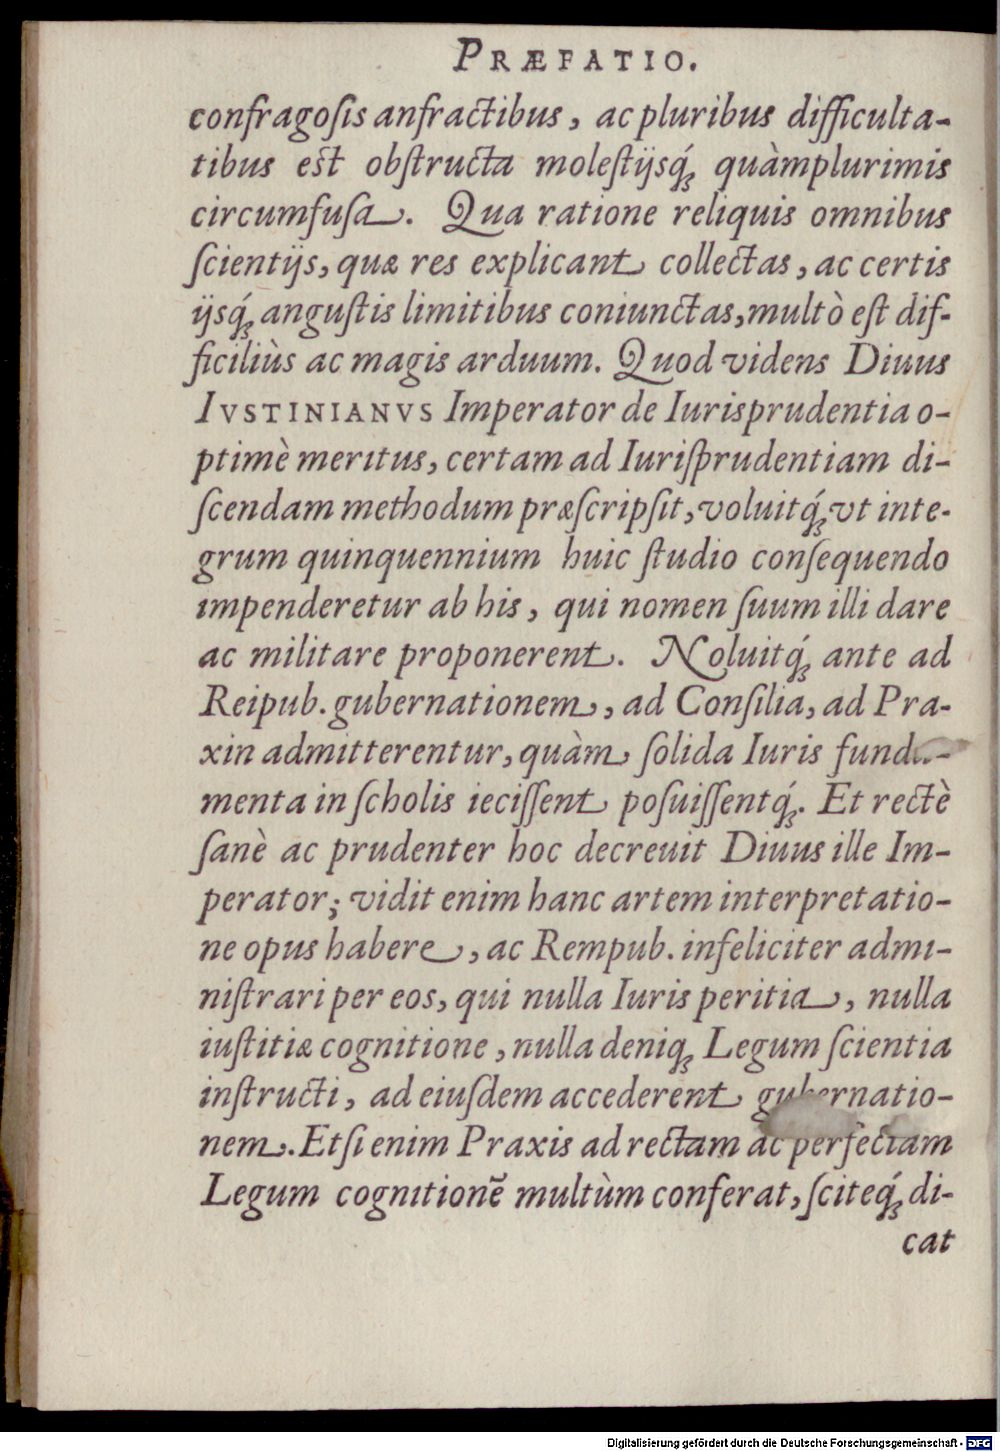 PRÆFATIO.
confragoſis anfractibus, ac pluribus difficulta-
tibus est obſtructa moleſtijsq́ꝫ quàmplurimis
circumfuſa. Qua ratione reliquis omnibus
ſcientijs, quæ res explicant collectas, ac certis
ijsq́ꝫ anguſtis limitibus coniunctas, multò eſt dif-
ficiliùs ac magis arduum. Quod videns Diuus
IVSTINIANVS Imperator de Iurisprudentia o-
ptimè meritus, certam ad Iuriſprudentiam di-
ſcendam methodum præſcripſit, voluitq́ꝫ vt inte-
grum quinquennium huic ſtudio conſequendo
impenderetur ab his, qui nomen ſuum illi dare
ac militare proponerent. Noluitq́ꝫ ante ad
Reipub. gubernationem, ad Conſilia, ad Pra-
xin admitterentur, quàm ſolida Iuris funda-
menta in ſcholis ieciſſent poſuiſſentq́ꝫ. Et rectè
ſanè ac prudenter hoc decreuit Diuus ille Im-
perator; vidit enim hanc artem interpretatio-
ne opus habere, ac Rempub. infeliciter admi-
niſtrari per eos, qui nulla Iuris peritia, nulla
iuſtitiæ cognitione, nulla deniqꝫ Legum ſcientia
inſtructi, ad eiuſdem accederent gubernatio-
nem. Etſi enim Praxis ad rectam ac perfectam
Legum cognitionē multùm conferat, ſciteq́ꝫ di-
cat
Digitalisierung gefördert durch die Deutsche Forschungsgemeinschaft - DFG